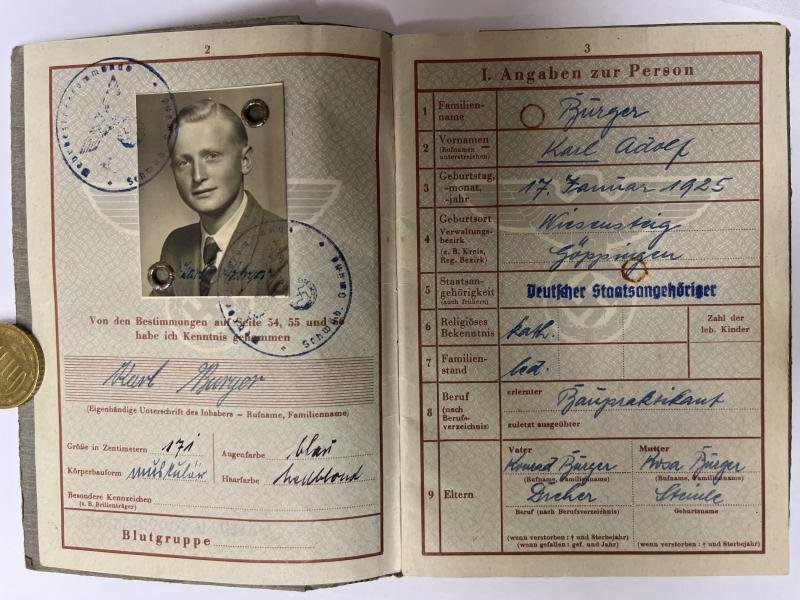 2
Von den Bestimmungen auf Seite 54, 55 und 56
habe ich Kenntnis genommen
Karl Burger
(Eigenhändige Unterschrift des Inhabers – Rufname, Familienname)
Größe in Zentimetern 171 Augenfarbe blau
Körperbauform muskulär Haarfarbe hellblond
Besondere Kennzeichen
(z. B. Brillenträger)
Blutgruppe
3
I. Angaben zur Person
1 Familien-
name
Burger
2 Vornamen
(Rufnamen
unterstreichen)
Karl Adolf
3 Geburtstag,
-monat,
-jahr
17. Januar 1925
4 Geburtsort
Verwaltungs-
bezirk
(z. B. Kreis,
Reg. Bezirk)
Wiesensteig
Göppingen
5 Staatsan-
gehörigkeit
(auch frühere)
Deutscher Staatsangehöriger
6 Religiöses
Bekenntnis
kath.
Zahl der
leb. Kinder
7 Familien-
stand
led.
8 Beruf
(nach
Berufs-
verzeichnis)
erlernter
Baupraktikant
zuletzt ausgeübter
9 Eltern
Vater
Konrad Burger
(Rufname, Familienname)
Beruf (nach Berufsverzeichnis)
(wenn verstorben: † und Sterbejahr)
(wenn gefallen: gef. und Jahr)
Mutter
Rosa Burger
(Rufname, Familienname)
Geburtsname
(wenn verstorben: † und Sterbejahr)